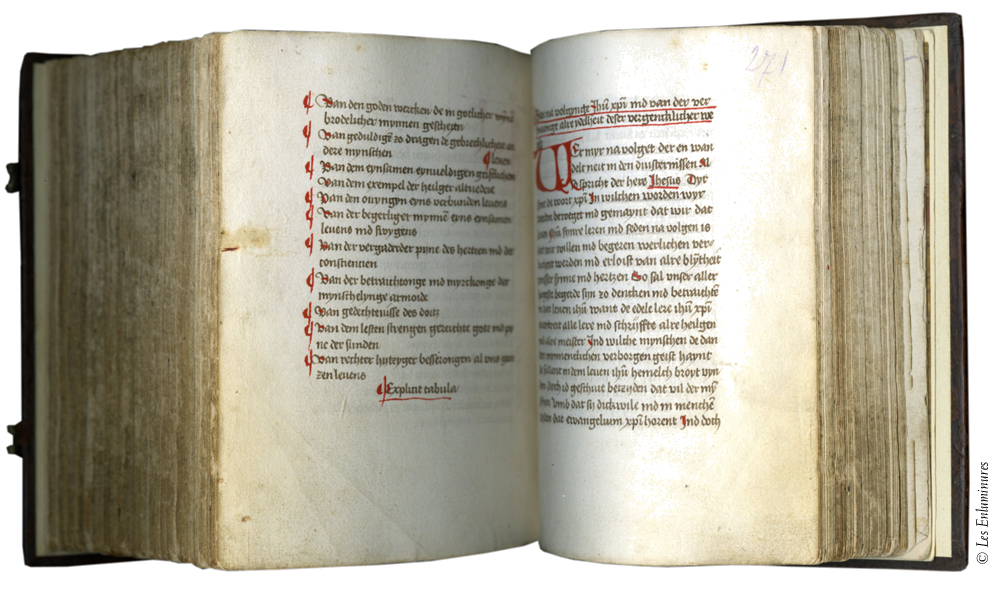 Van den goden wercken de in gotlicher
brodelicher mynnen geschehen
Van geduldiger zo dragen de gebrechlicheit an
dere mynschen
leuen
Van dem eynsamen eynueldigen geistlichem
Van dem exempel der heilger altuedere
Van den ouyngyn eyns verbunden leuens
Van der begerliger mynnē eyns eynsamen
leuens ind swygens
Van der vergaderder pyne des hertzen ind der
conscientien
Van der betrachtonge ind myrckonge der
mynschelynge armode
Van gedechtnisse des doitz
Van dem lesten strengen gerichte gots ind
ne der sunden
Van rechter huteyger besserongen al vns gan
zen leuens
Explicit tabula
271
na volgynge Jhū xpī ind van der ver
alre ydelheit deser vergencklicher we
WEr myr na volget der en wan
delt neit in den duisternissen Al
spricht der here Jhesus Dyt
synt de wort xpī In wilchen worden wyr
werden beweget ind gemaynt dat wir dat
leuen Jhū synre leren ind seden na volgen is
dat wir willen ind begeren werlichen ver
werden ind erloist van alre blyntheit
synne ind hertzen So sal vnser aller
begerde syn zo dencken ind betrachtē
in dem leuen ihū want de edele lere ihū xpī
alle lere ind schriffte alre heilgen
ind alre meister Ind wilche mynschen de dan
verborgen geist haynt
in dem leuen ihū hemelch broyt vyn
den doch id geschuit bezyden dat vil der
vmb dat sij dickwile ind in menchē
dat ewangelium xpī horent Ind doch
© Les Enluminures